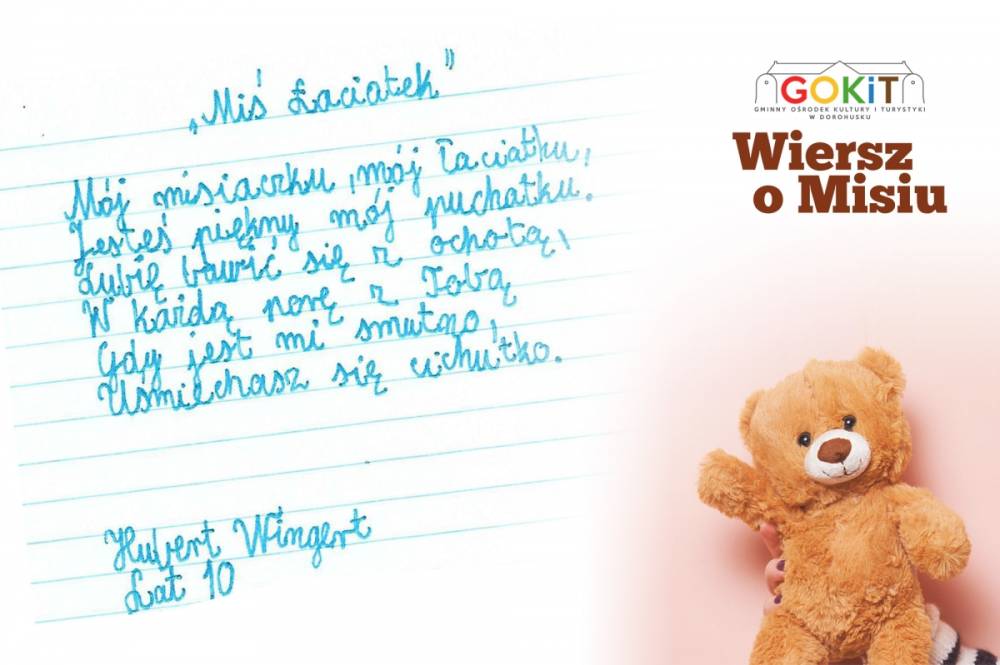 „Miś Łaciatek”
Mój misiaczku, mój Łaciatku,
Jesteś piękny mój puchatku.
Lubię bawić się z ochotą,
W każdą porę z Tobą
Gdy jest mi smutno,
Uśmiechasz się cichutko.
Hubert Wingert
Lat 10
GOKiT
GMINNY OŚRODEK KULTURY I TURYSTYKI
W DOROHUSKU
Wiersz
o Misiu